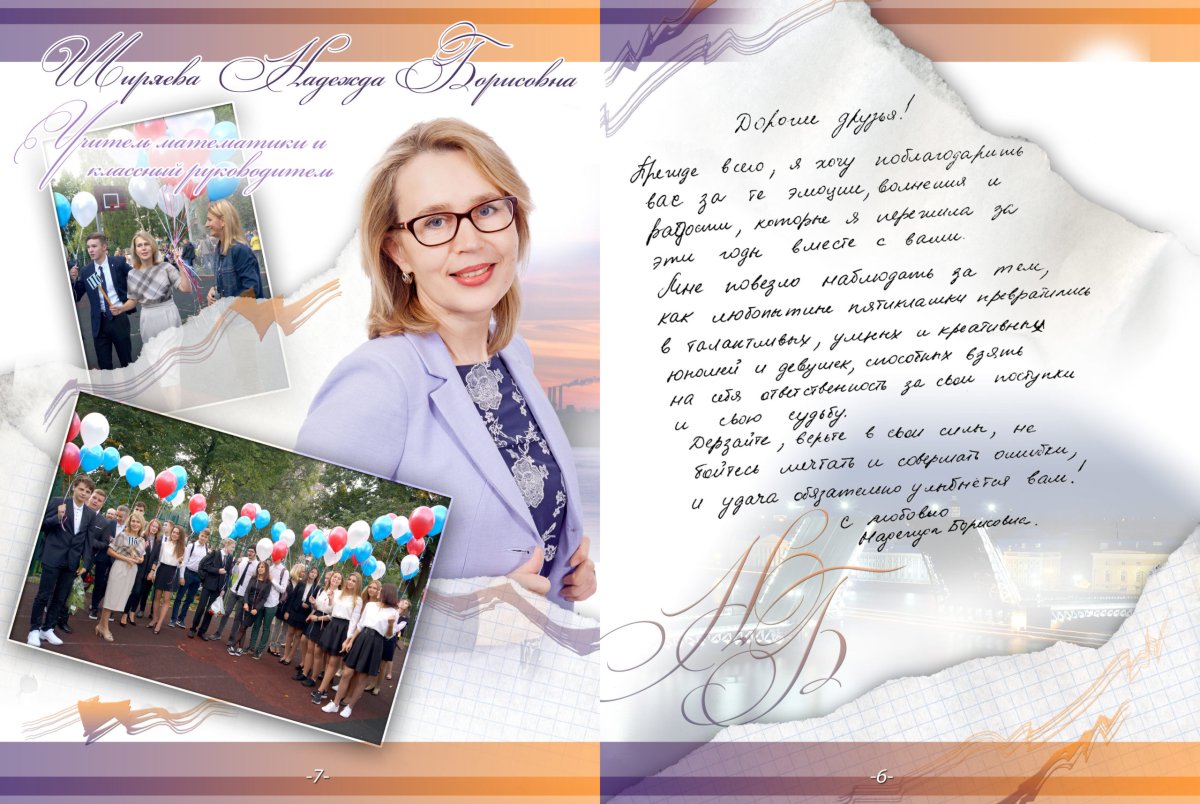 Ширяева Надежда Борисовна
Учитель математики и
классный руководитель
11б
-7-
Дорогие друзья!
Прежде всего, я хочу поблагодарить
вас за те эмоции, волнения и
радости, которые я пережила за
эти годы вместе с вами.
Мне повезло наблюдать за тем,
как любопытные пятиклашки превратились
в талантливых, умных и креативных
юношей и девушек, способных взять
на себя ответственность за свои поступки
и свою судьбу.
Дерзайте, верьте в свои силы, не
бойтесь мечтать и совершать ошибки,
и удача обязательно улыбнётся вам!
С любовью
Надежда Борисовна.
НБ
-6-